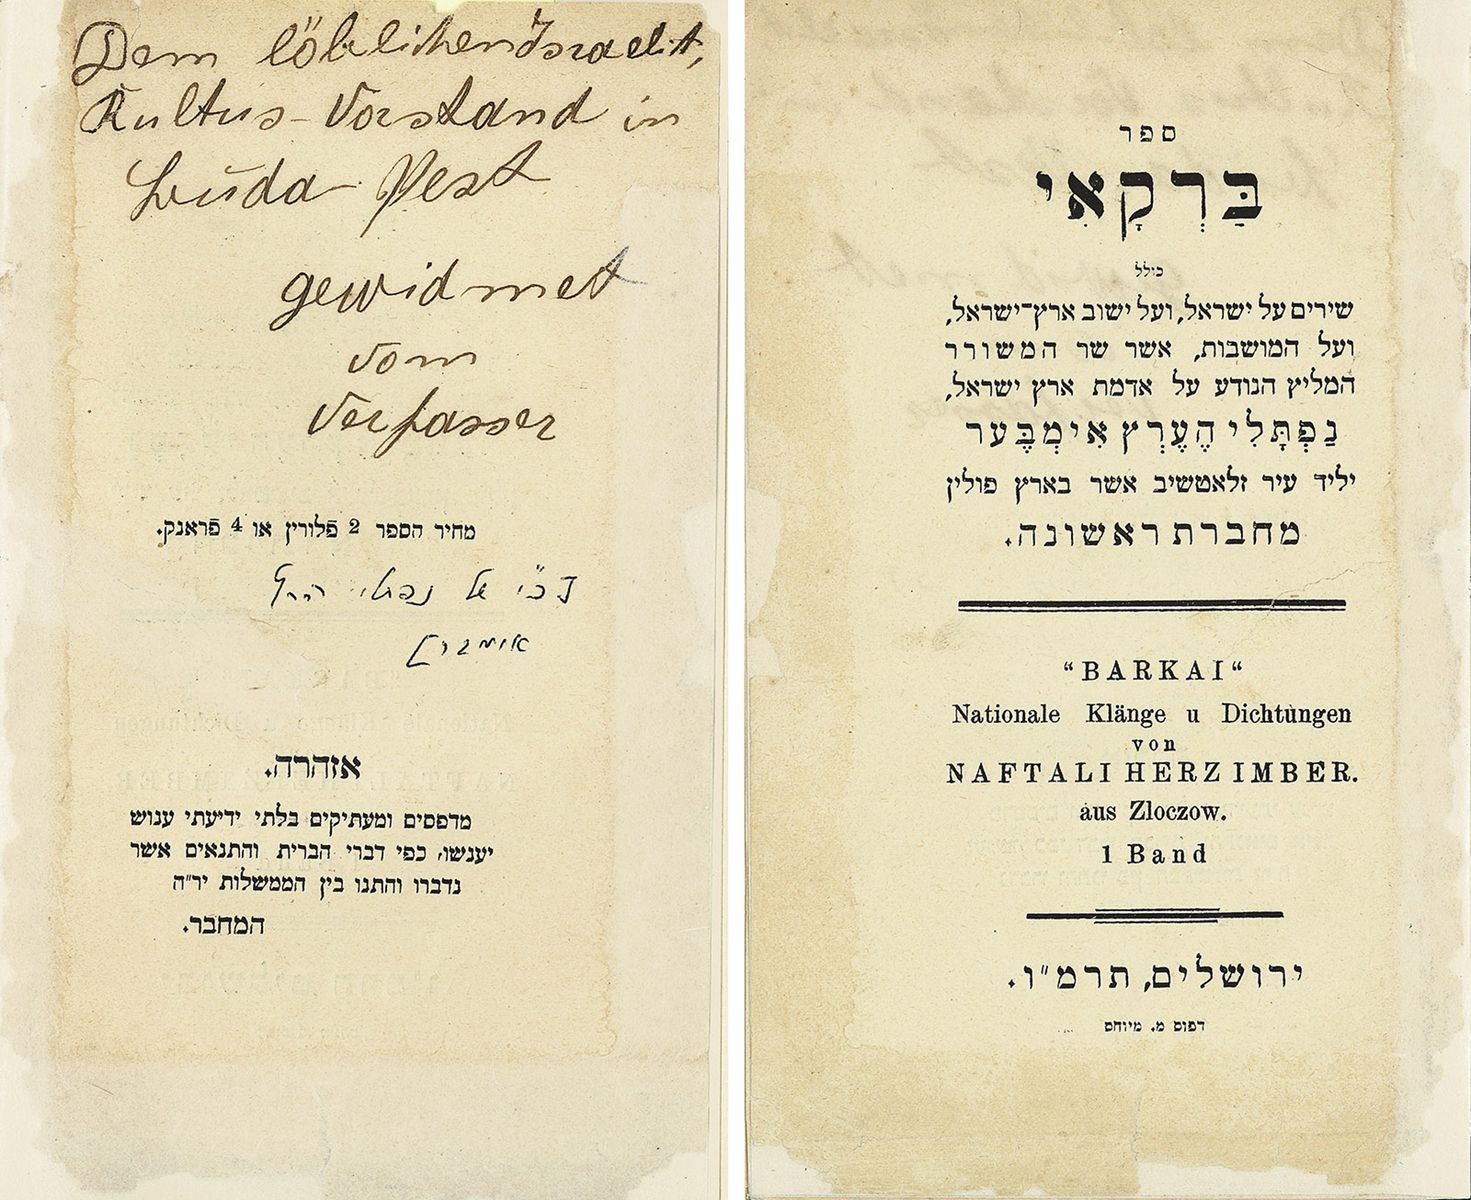 Dem löblichen Israelit,
Kultus-Vorstand in
Buda Pest
gewidmet
vom
Verfasser
מחיר הספר 2 פלורין או 4 פראנק.
כ"י של נפתלי הרץ
אימבר
אזהרה.
מדפסים ומעתיקים בלתי ידיעתי ענוש
יענשו, כפי דברי הברית והתנאים אשר
נדברו והתנו בין הממשלות יר״ה
המחבר.
ספר
בַּרְקָאִי
כולל
שירים על ישראל, ועל ישוב ארץ־ישראל,
ועל המושבות, אשר שר המשורר
המליץ הנודע על אדמת ארץ ישראל,
נַפְתָּלִי הֶערְץ אִימְבֶּער
יליד עיר זלאטשיב אשר בארץ פולין
מחברת ראשונה.
“BARKAI“
Nationale Klänge u Dichtùngen
von
NAFTALI HERZ IMBER.
aus Zloczow.
1 Band
ירושלים, תרמ״ו.
דפוס מ. מיוחס